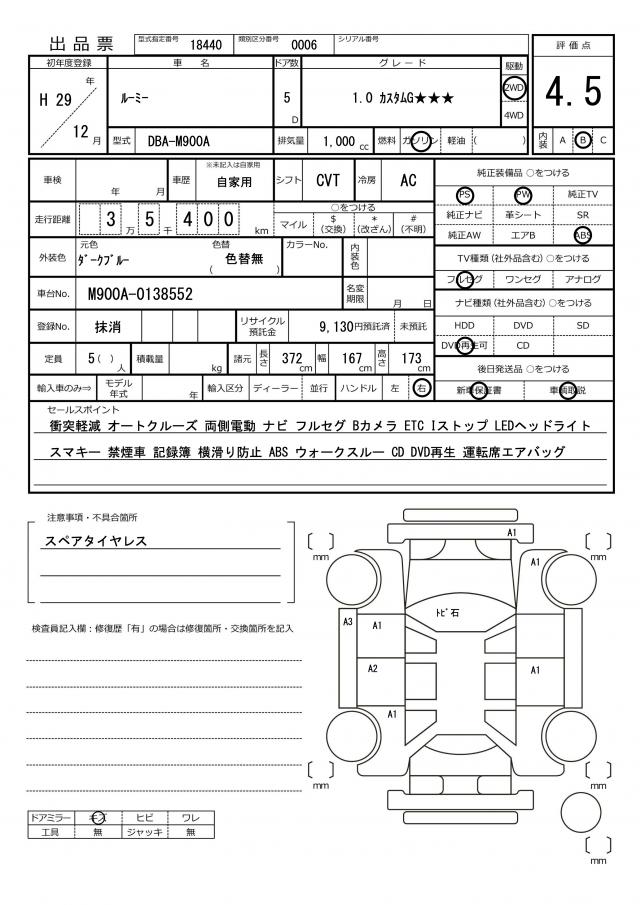 出品票 型式指定番号 18440 類別区分番号 0006 シリアル番号
評価点
4.5
内装 A B C
初年度登録 車名 ドア数 グレード 駆動
H 29 年 12 月 ルーミー 5 D 1.0 カスタムG★★★ 2WD
4WD
型式 DBA-M900A 排気量 1,000 cc 燃料 ガソリン 軽油 ( )
車検 年 月 車歴 ※未記入は自家用 自家用 シフト CVT 冷房 AC
走行距離 3 万 5 千 4 0 0 km ○をつける
マイル $ (交換) * (改ざん) # (不明)
外装色 元色 ダークブルー 色替 色替無 ( ) カラーNo. 内装色
車台No. M900A-0138552 名変期限 月 日
登録No. 抹消 リサイクル預託金 9,130円預託済 未預託
定員 5 ( ) 人 積載量 kg 諸元 長さ 372 cm 幅 167 cm 高さ 173 cm
輸入車のみ⇒ モデル年式 年 輸入区分 ディーラー 並行 ハンドル 左 右
純正装備品 ○をつける
PS PW 純正TV
純正ナビ 革シート SR
純正AW エアB ABS
TV種類 (社外品含む) ○をつける
フルセグ ワンセグ アナログ
ナビ種類 (社外品含む) ○をつける
HDD DVD SD
DVD再生可 CD
後日発送品 ○をつける
新車保証書 車輌取説
セールスポイント
衝突軽減 オートクルーズ 両側電動 ナビ フルセグ Bカメラ ETC Iストップ LEDヘッドライト
スマキー 禁煙車 記録簿 横滑り防止 ABS ウォークスルー CD DVD再生 運転席エアバッグ
注意事項・不具合箇所
スペアタイヤレス
検査員記入欄：修復歴「有」の場合は修復箇所・交換箇所を記入
ドアミラー キズ ヒビ ワレ
工具 無 ジャッキ 無
A1
mm
A1
mm
トビ石
A3
A1
A2
A1
A1
mm
mm
mm